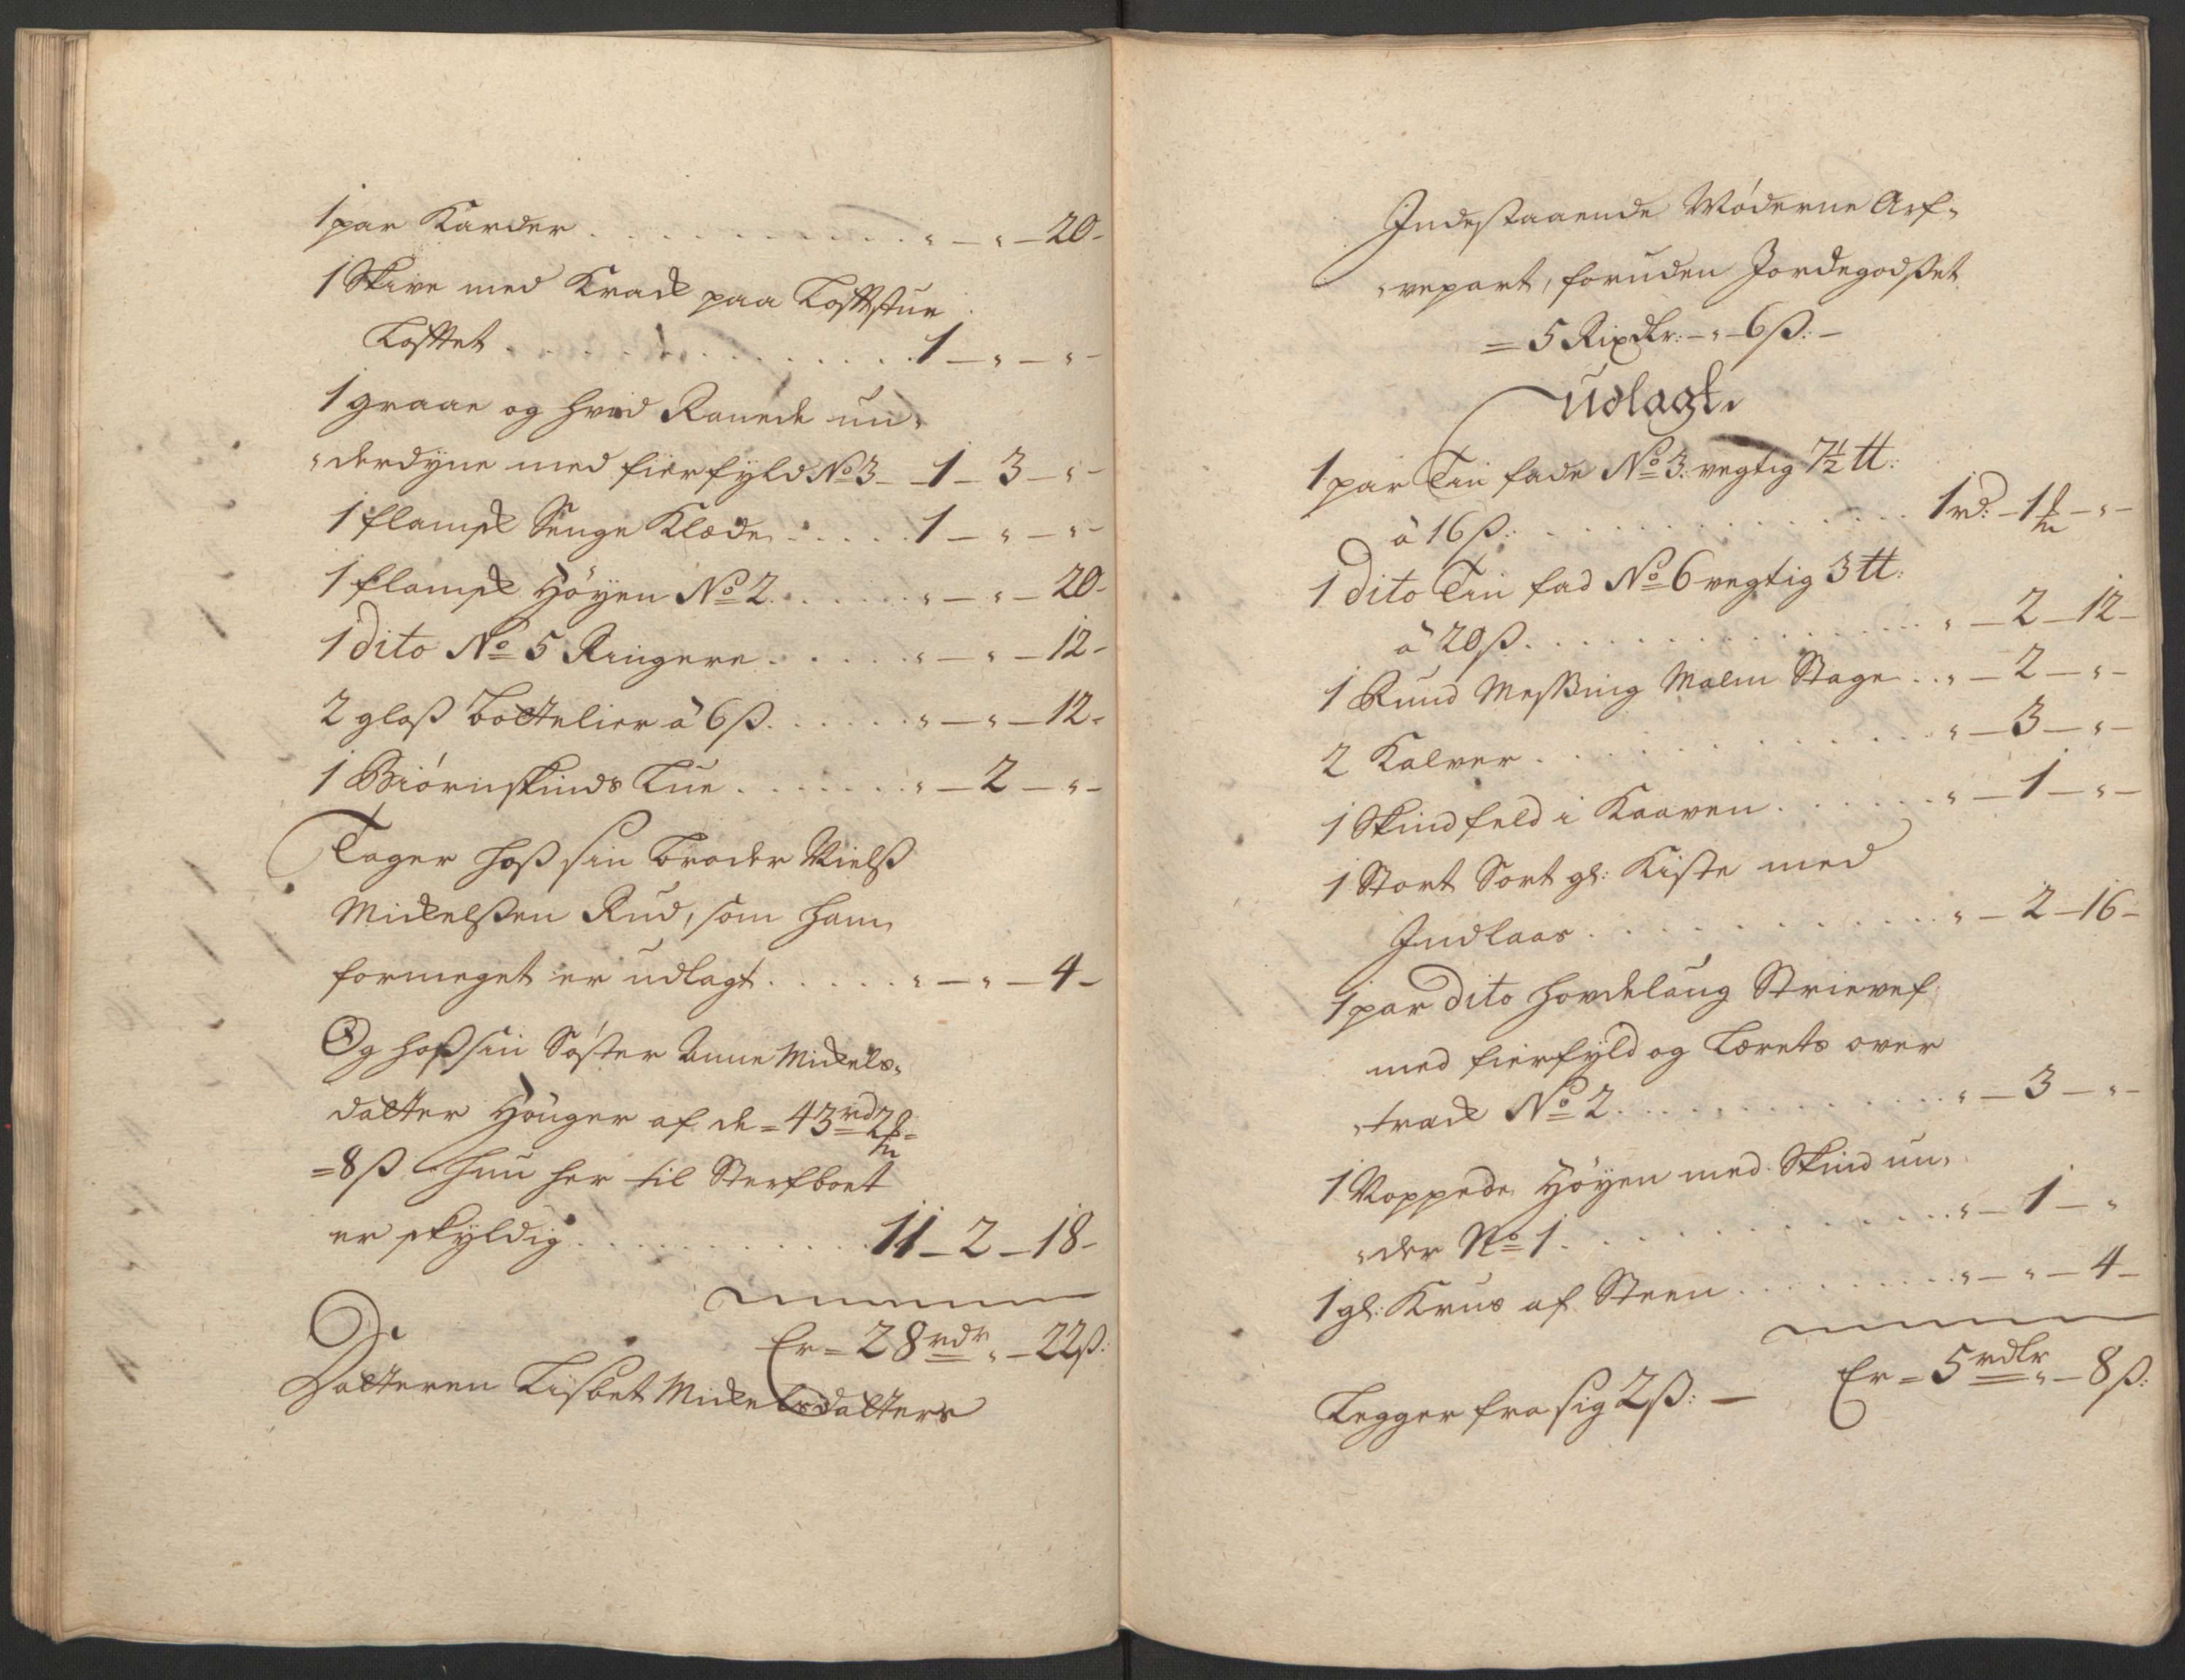 1 par Karder . . . . . . . . . . „ — „ — 20 -
1 Skive med Krack paa Loftstue
Loftet . . . . . . . . . . 1 — „ — „ -
1 graae og hvid Ranede un„
„derdyne med fierfyld No 3 - 1 - 3 - „ -
1 flamsk Senge Klæde . . . . . 1 — „ — „ -
1 flamsk Höyen No 2 . . . . . „ — „ — 20 -
1 dito No 5 Ringere . . . . . „ — „ — 12 -
2 glasß bottelier â 6 ß . . . . . „ — „ — 12 -
1 Biörnskinds Lue . . . . . . „ — 2 — „ -
Tager hosß sin broder Nielsß
Mickelsßen Rud, som ham
formeget er udlagt . . . . . „ — „ — 4 -
Og hosß sin Söster Anne Mickels„
datter Houger af de = 43 rd 2 =
= 8 ß hun her til Sterfboet
er skyldig . . . . . . . . . 11 — 2 — 18 -
Er = 28 rdr „ — 22 ß:
Datteren Lisbet Mickelsdatters
Indestaaende Möderne Arf„
„vepart, foruden Jordegodset
= 5 Rixdlr: — „ — 6 ß: —
udlagt
1 par Tin fade No 3: vegtig 7½ tt:
â 16 ß: . . . . . . . . . . 1 rd: — 1 — „ —
1 dito Tin fad No 6 vegtig 3 tt:
â 20 ß . . . . . . . . . . „ — 2 — 12 —
1 Rund Mesßing Malm Stage . . „ — 2 — „ —
2 Kalver . . . . . . . . . . „ — 3 — „ —
1 Skindfeld i Kaaven . . . . . „ — 1 — „ —
1 Stort Sort gl: Kiste med
Indlaas . . . . . . . . . . „ — 2 — 16 —
1 par dito hovdelaug Strievef
med fierfyld og Lærets over
„træk No 2 . . . . . . . . . „ — 3 — „ —
1 Noppede Höyen med Skind un„
„der No 1 . . . . . . . . . . „ — 1 — „
1 gl: Krus af Steen . . . . . . „ — „ — 4 —
Er = 5 rdlr „ — 8 ß:
Legger fra sig 2 ß: —